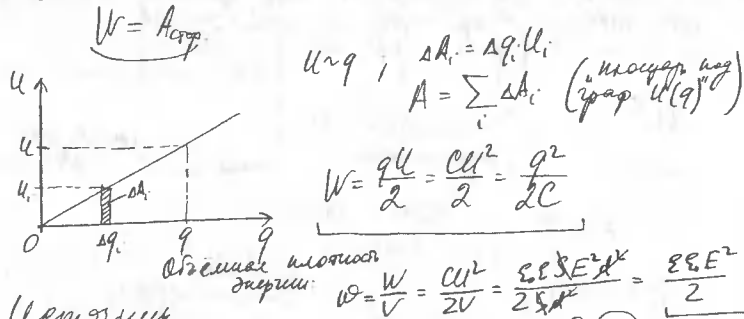 W = Aстор.
U ~ q ; ΔAᵢ = Δqᵢ Uᵢ
A = Σᵢ ΔAᵢ ("площадь под граф U(q)")
U
U
Uᵢ
ΔAᵢ
O Δqᵢ q q
W = qU/2 = CU²/2 = q²/2C
Объёмная плотность
энергии: ω = W/V = CU²/2V = εε₀SE²d²/2Sd² = εε₀E²/2